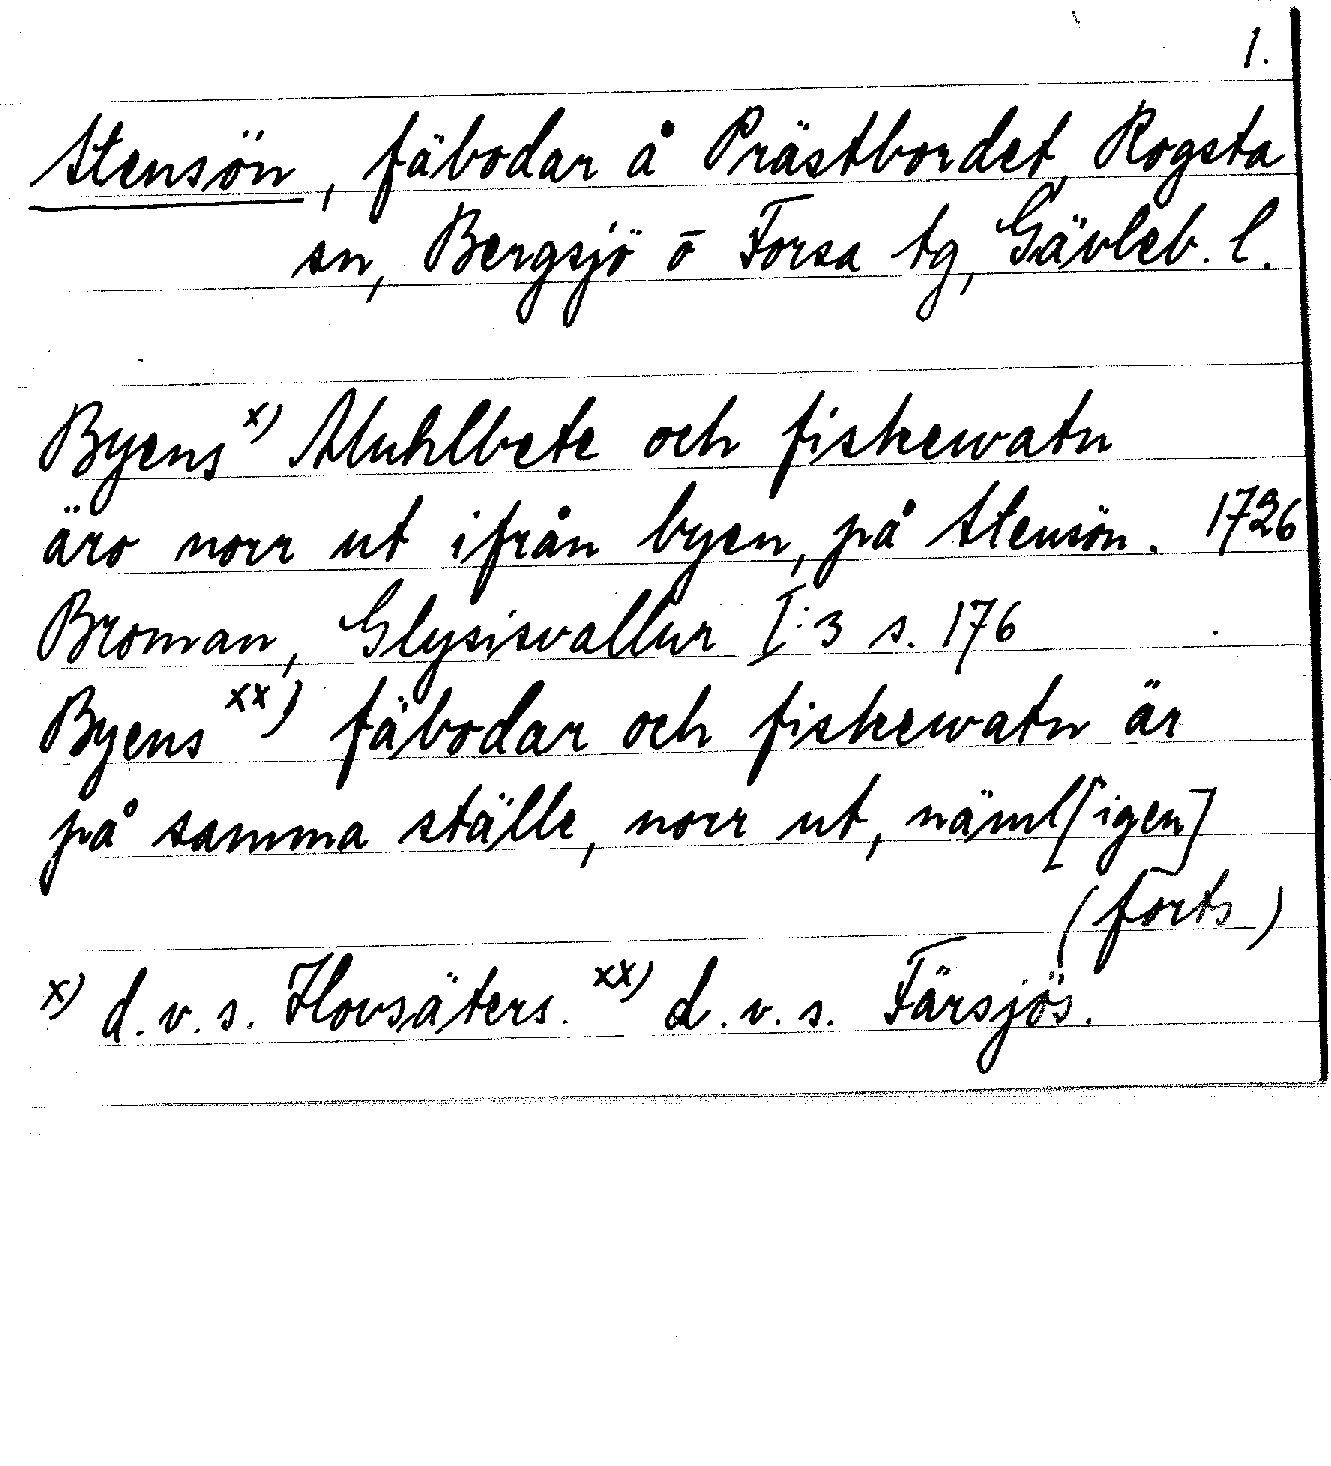 1.
Stensön, fäbodar å Prästbordet, Rogsta
sn, Bergsjö o Forsa tg, Gävleb. l.
Byens x) Muhlbete och fiskewatn
äro norr ut ifrån byen, på Stensön. 1726
Broman, Glysisvallur I:3 s. 176
Byens xx) fäbodar och fiskewatn är
på samma ställe, norr ut, näml[igen]
(forts)
x) d.v.s. Hovsäters. xx) d.v.s. Färsjös.